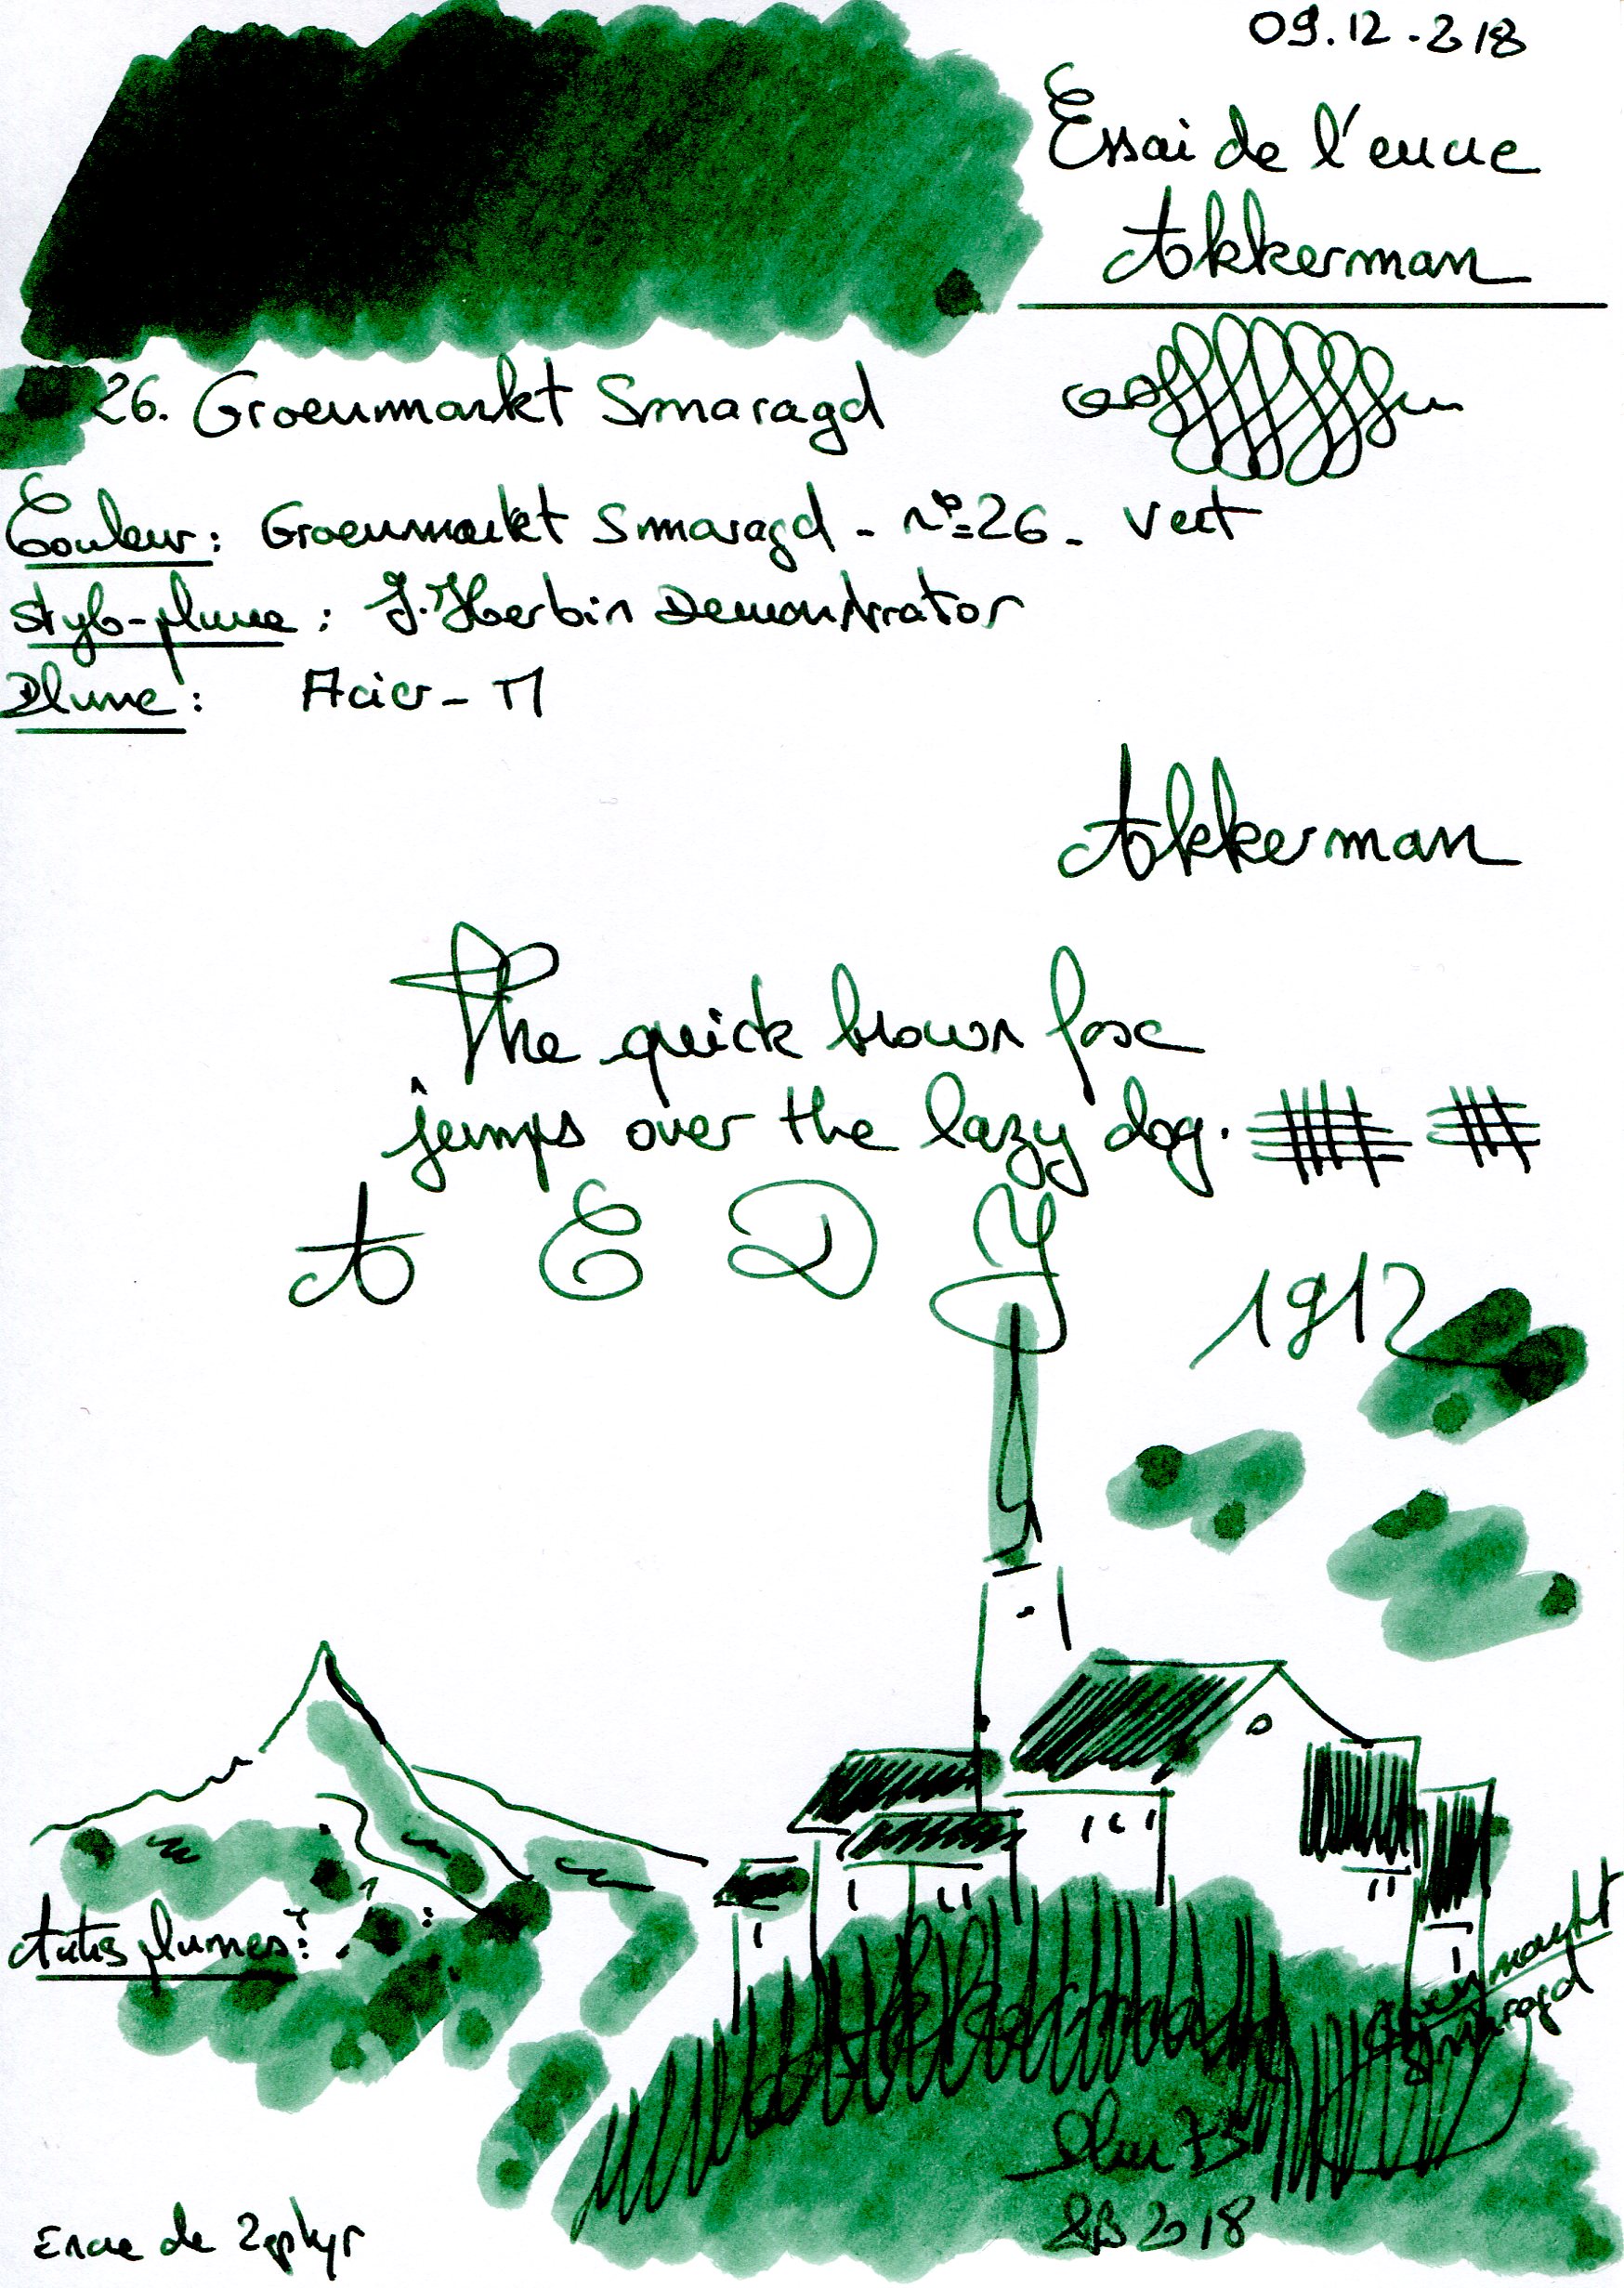 09.12.2018
Essai de l'encre
Akkerman
26. Groenmarkt Smaragd
Couleur : Groenmarkt Smaragd - n°=26 - Vert
Stylo-plume : J.Herbin Demonstrator
Plume : Acier - M
Akkerman
The quick brown fox
jumps over the lazy dog.
A E D Y
1912
Autres plumes :
Groenmarkt
Smaragd
Akkerman
2018
Encre de Zephyr